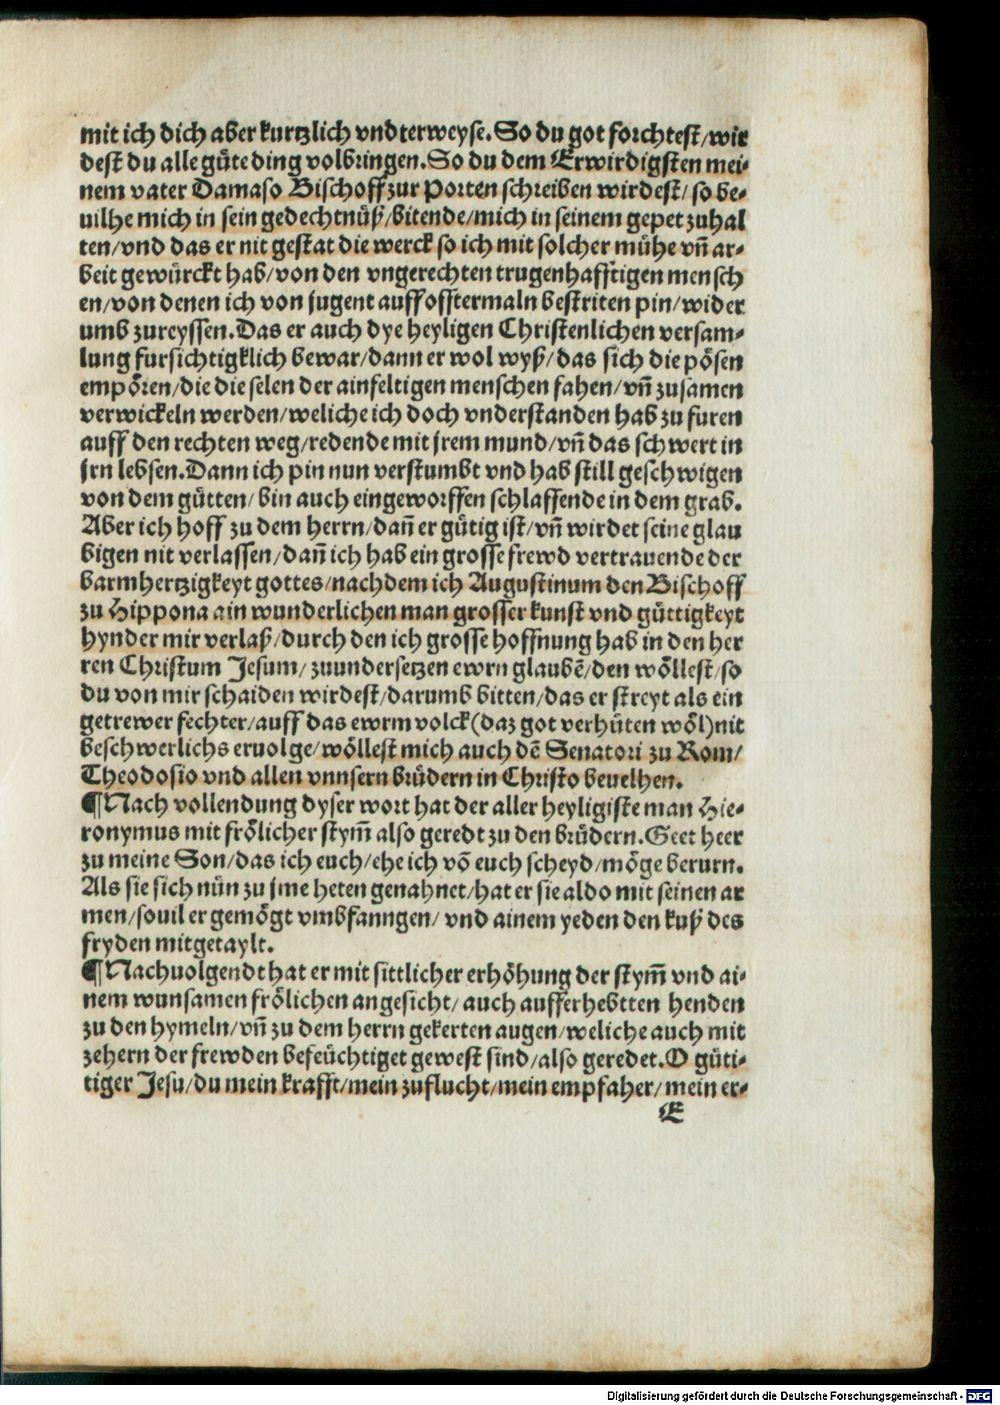 mit ich dich aber kurtzlich vndterweyse. So du got forchtest/wir
dest du alle gůte ding volbringen. So du dem Erwirdigsten mei-
nem vater Damaso Bischoff zur Porten schreiben wirdest/ so be-
uilhe mich in sein gedechtnüß/bitende/mich in seinem gepet zuhal
ten/vnd das er nit gestat die werck so ich mit solcher mühe vñ ar-
beit gewürckt hab/von den vngerechten trugenhafftigen mensch
en/von denen ich von jugent auff offtermaln bestriten pin/wider
umb zureyssen. Das er auch dye heyligen Christenlichen versam-
lung fursichtigklich bewar/dann er wol wyß/das sich die pösen
empören/die die selen der ainfeltigen menschen fahen/vñ zusamen
verwickeln werden/weliche ich doch vnderstanden hab zu furen
auff den rechten weg/redende mit jrem mund/vñ das schwert in
jrn lebsen. Dann ich pin nun verstumbt vnd hab still geschwigen
von dem gütten/ bin auch eingeworffen schlaffende in dem grab.
Aber ich hoff zu dem herrn/dañ er gütig ist/vñ wirdet seine glau
bigen nit verlassen/dañ ich hab ein grosse frewd vertrauende der
barmhertzigkeyt gottes/nachdem ich Augustinum den Bischoff
zu Hippona ain wunderlichen man grosser kunst vnd güttigkeyt
hynder mir verlaß/durch den ich grosse hoffnung hab in den her
ren Christum Jesum/ zuundersetzen ewrn glaubē/den wöllest/so
du von mir schaiden wirdest/darumb bitten/das er streyt als ein
getrewer fechter/auff das ewrm volck(daz got verhüten wöl)nit
beschwerlichs eruolge/wöllest mich auch dē Senatori zu Rom/
Theodosio vnd allen vnnsern brüdern in Christo beuelhen.
¶Nach vollendung dyser wort hat der aller heyligiste man Hie-
ronymus mit frölicher stym̃ also geredt zu den brüdern. Geet heer
zu meine Son/das ich euch/ehe ich vō euch scheyd/möge berurn.
Als sie sich nün zu jme heten genahnet/hat er sie aldo mit seinen ar
men/souil er gemögt vmbfanngen/ vnd ainem yeden den kuß des
fryden mitgetaylt.
¶Nachuolgendt hat er mit sittlicher erhöhung der stym̃ vnd ai-
nem wunsamen frölichen angesicht/ auch aufferhebtten henden
zu den hymeln/vñ zu dem herrn gekerten augen/weliche auch mit
zehern der frewden befeüchtiget gewest sind/also geredet. O güti-
tiger Jesu/du mein krafft/mein zuflucht/mein empfaher/mein er-
E
Digitalisierung gefördert durch die Deutsche Forschungsgemeinschaft - DFG